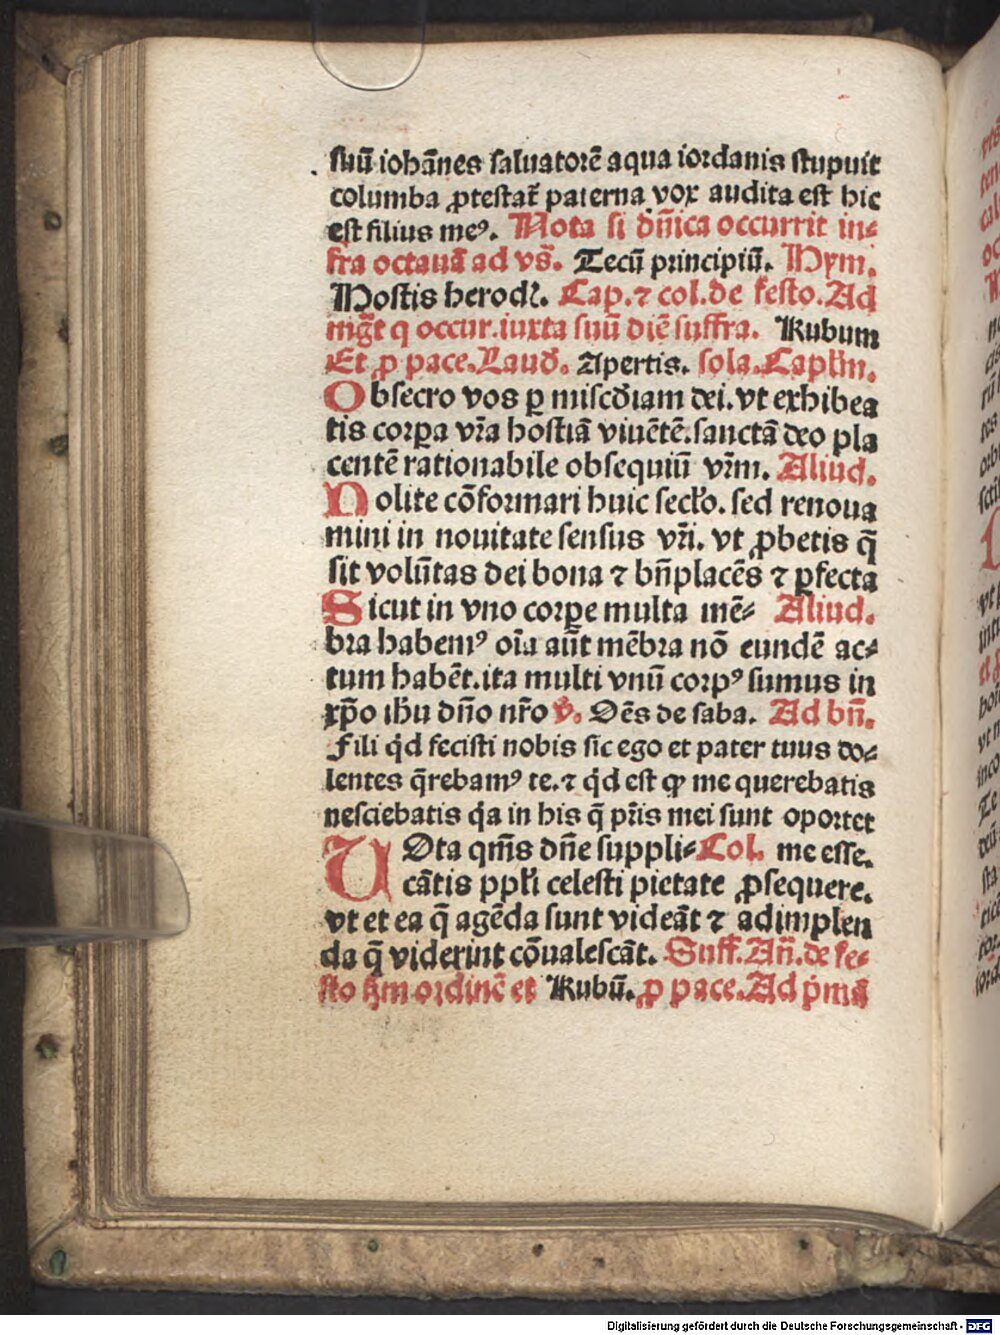 suū iohānes saluatorē aqua iordanis stupuit
columba ꝓtestat᷑ paterna vox audita est hic
est filius meꝰ. Nota si dn̄ica occurrit in⸗
fra octauā ad vs̄. Tecū principiū. Hym.
Hostis herodꝭ. Cap. ⁊ col. de festo. Ad
mgt̄ q occur. iuxta suū diē suffra. Rubum
Et ꝓ pace. Laud. Apertis. sola. Caplm.
Obsecro vos ꝑ misc̄diam dei. vt exhibea
tis corꝑa vr̄a hostiā viuētē. sanctā deo pla
centē rationabile obsequiū vr̄m. Aliud.
Nolite cōformari huic secl̄o. sed renoua
mini in nouitate sensus vr̄i. vt ꝓbetis q̄
sit volūtas dei bona ⁊ bn̄placēs ⁊ ꝑfecta
Sicut in vno corꝑe multa mē⸗ Aliud.
bra habemꝰ oīa aūt mēbra nō eundē ac⸗
tum habēt. ita multi vnū corpꝰ sumus in
xp̄o ihū dn̄o nr̄o ꟟. Oēs de saba. Ad bn̄.
Fili qd̄ fecisti nobis sic ego et pater tuus do⸗
lentes q̄rebamꝰ te. ⁊ qd̄ est ꝙ me querebatis
nesciebatis q̇a in his q̄ pr̄is mei sunt oportet
VOta qm̄s dn̄e suppli⸗ Col. me esse.
cātis ppl̄i celesti pietate ꝓsequere.
vt et ea q̄ agēda sunt videāt ⁊ adimplen
da q̄ viderint cōualescāt. Suff. Añ. de fe⸗
sto hm̄ ordinē et Rubū. ꝓ pace. Ad pͥmā
Digitalisierung gefördert durch die Deutsche Forschungsgemeinschaft - DFG